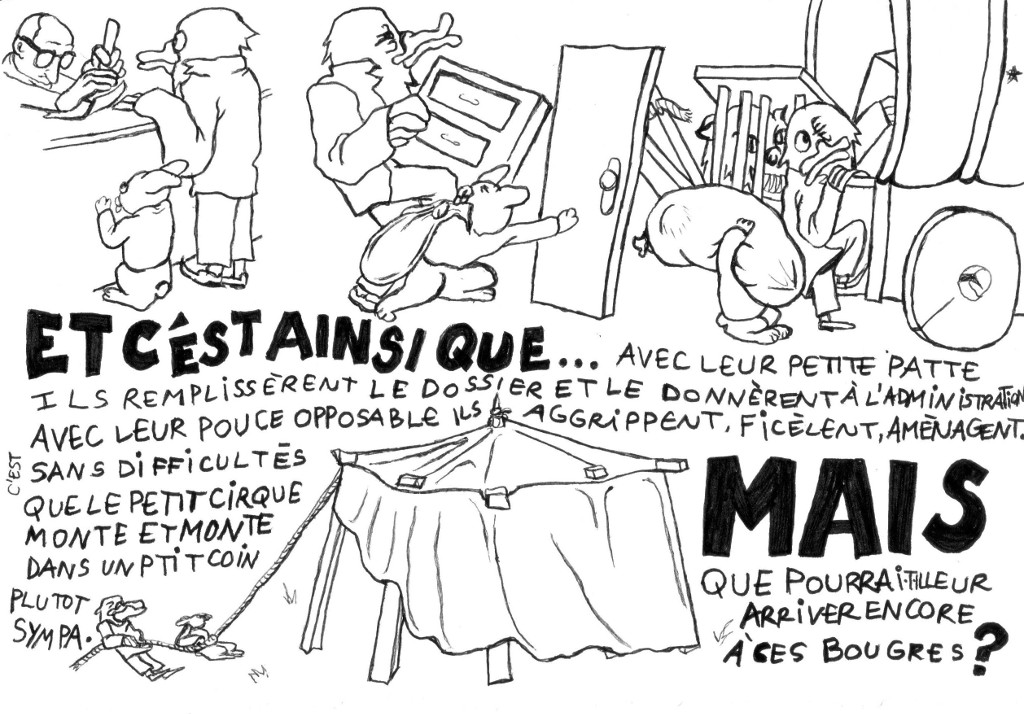 ET C'ÉST AINSI QUE... AVEC LEUR PETITE PATTE
ILS REMPLISSÈRENT LE DOSSIER ET LE DONNÈRENT À L'ADMINISTRATION
AVEC LEUR POUCE OPPOSABLE ILS AGGRIPPENT, FICÈLENT, AMÈNAGENT.
C'EST SANS DIFFICULTÉS
QUE LE PETIT CIRQUE
MONTE ET MONTE
DANS UN PTIT COIN
PLUTOT
SYMPA.
MAIS
QUE POURRAIT-ILLEUR
ARRIVER ENCORE
À CES BOUGRES ?